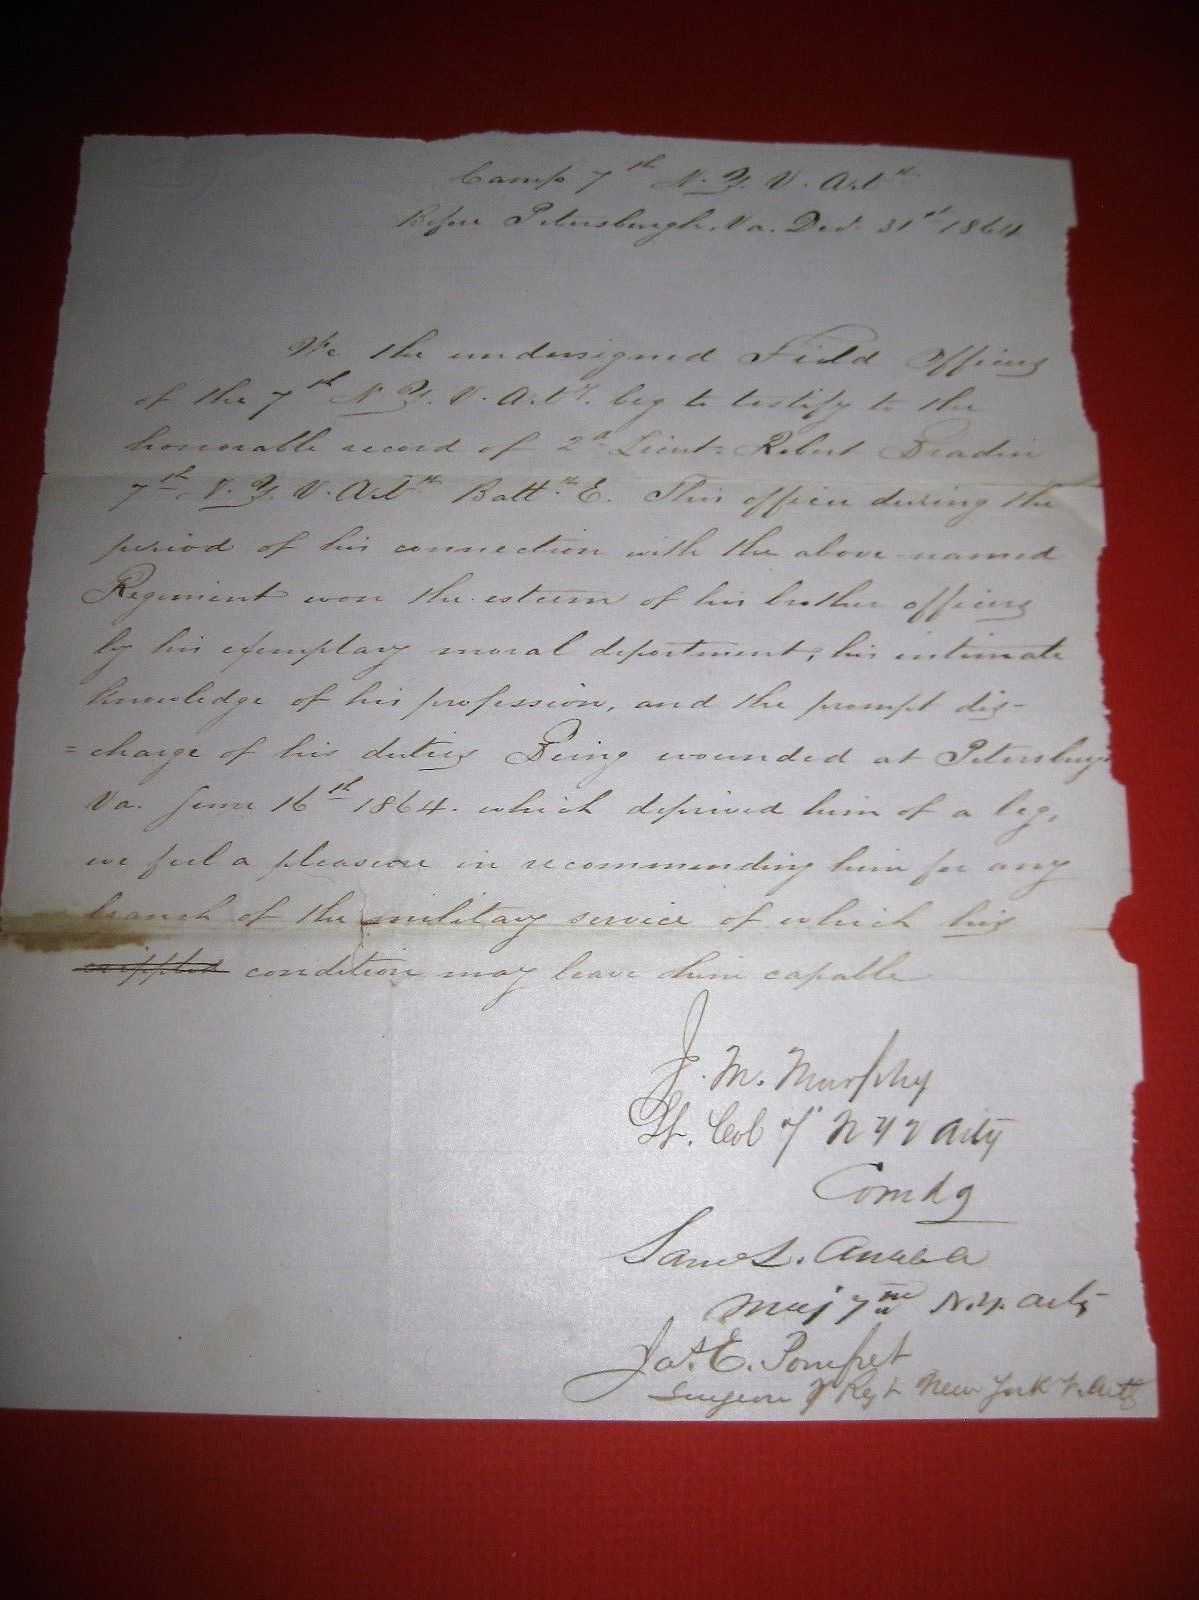 Camp 7th N.Y. V. Arty
Before Petersburgh. Va. Dec 31st 1864
We the undersigned Field Officers
of the 7th N.Y. V. Arty. beg to testify to the
honorable record of 2d Lieut: Robert
7th N.Y. V. Arty Batty E. This officer during the
period of his connection with the above named
Regiment won the esteem of his brother officers
by his exemplary moral deportment, his intimate
knowledge of his profession, and the prompt dis-
=charge of his duties Being wounded at Petersburg
Va. June 16th 1864. which deprived him of a leg,
we feel a pleasure in recommending him for any
branch of the military service of which his
crippled condition may leave him capable
J. M. Murphy
Lt. Col 7" N Y V Arty
Comdg
Saml L.
Maj 7th N.Y. Arty
Jas. E. Pomfret
Surgeon 7 Regt New York V. Arty